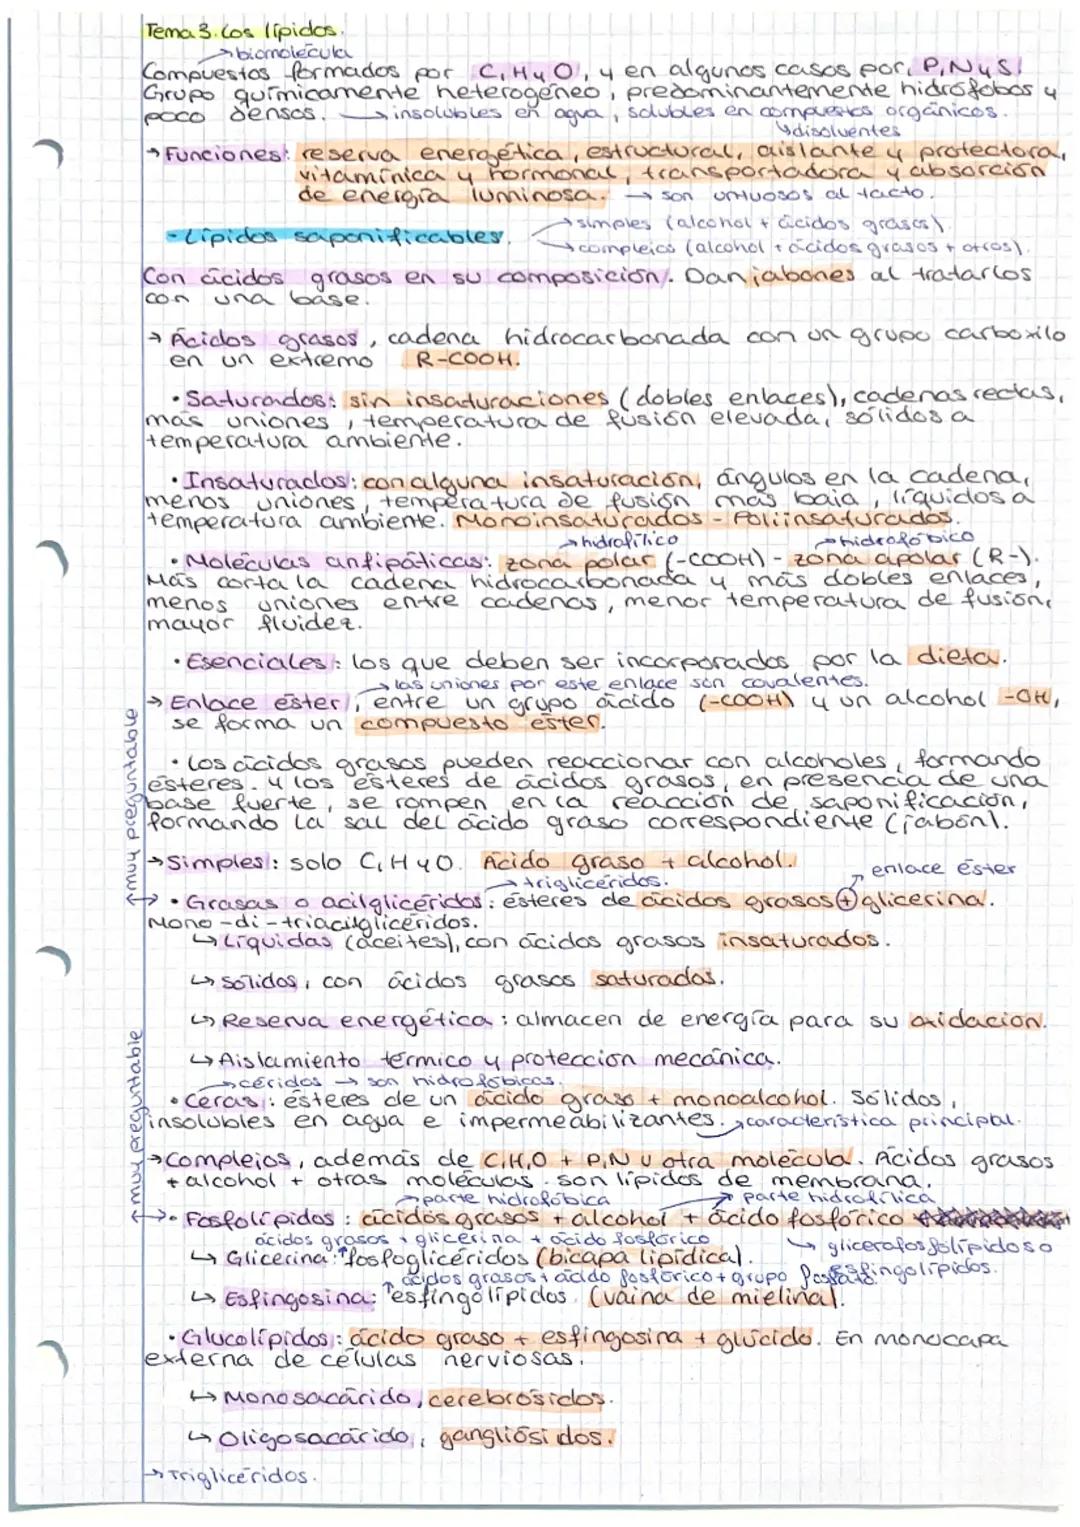 Tema 3. Los lípidos.
→ biomolécula
Compuestos formados por C, H y O, y en algunos casos por, P, N y S.
Grupo químicamente heterogéneo, predominantemente hidrófobos y
poco densos. → insolubles en agua, solubles en compuestos orgánicos.
↳ disolventes
→ Funciones: reserva energética, estructural, aislante y protectora,
vitamínica y hormonal, transportadora y absorción
de energía luminosa. → son untuosos al tacto.
→ simples (alcohol + ácidos grasos).
- Lípidos saponificables.
→ complejos (alcohol + ácidos grasos + otros).
Con ácidos grasos en su composición. Dan jabones al tratarlos
con una base.
→ Ácidos grasos, cadena hidrocarbonada con un grupo carboxilo
en un extremo R-COOH.
• Saturados: sin insaturaciones (dobles enlaces), cadenas rectas,
más uniones, temperatura de fusión elevada, sólidos a
temperatura ambiente.
• Insaturados: con alguna insaturación, ángulos en la cadena,
menos uniones, temperatura de fusión más baja, líquidos a
temperatura ambiente. Monoinsaturados - Poliinsaturados.
→ hidrofílico → hidrofóbico
• Moléculas anfipáticas: zona polar (-COOH) - zona apolar (R-).
Más corta la cadena hidrocarbonada y más dobles enlaces,
menos uniones entre cadenas, menor temperatura de fusión,
mayor fluidez.
• Esenciales: los que deben ser incorporados por la dieta.
→ las uniones por este enlace son covalentes.
→ Enlace éster, entre un grupo ácido (-COOH) y un alcohol -OH,
se forma un compuesto éster.
• Los ácidos grasos pueden reaccionar con alcoholes, formando
ésteres. y los ésteres de ácidos grasos, en presencia de una
base fuerte, se rompen en la reacción de saponificación,
formando la sal del ácido graso correspondiente (jabón).
muy preguntable
→ Simples: solo C, H y O. Ácido graso + alcohol.
enlace éster
→ triglicéridos.
• Grasas o acilglicéridos: ésteres de ácidos grasos + glicerina.
Mono-di-triacilglicéridos.
↳ Líquidas (aceites), con ácidos grasos insaturados.
↳ Sólidos, con ácidos grasos saturados.
↳ Reserva energética: almacen de energía para su oxidación.
↳ Aislamiento térmico y protección mecánica.
→ céridos → son hidrofóbicas.
• Ceras: ésteres de un ácido graso + monoalcohol. Sólidos,
insolubles en agua e impermeabilizantes. → característica principal.
muy preguntable
→ Complejos, además de C, H, O + P, N u otra molécula. Ácidos grasos
+ alcohol + otras moléculas. son lípidos de membrana.
→ parte hidrofóbica → parte hidrofílica
• Fosfolípidos: ácidos grasos + alcohol + ácido fosfórico
ácidos grasos + glicerina + ácido fosfórico ↳ glicerofosfolípidos o
↳ Glicerina: fosfoglicéridos (bicapa lipídica). esfingolípidos.
ácidos grasos + ácido fosfórico + grupo fosfato.
↳ Esfingosina: esfingolípidos. (vaina de mielina).
• Glucolípidos: ácido graso + esfingosina + glúcido. En monocapa
externa de células nerviosas.
↳ Monosacárido, cerebrósidos.
↳ Oligosacárido, gangliósidos.
→ Triglicéridos.